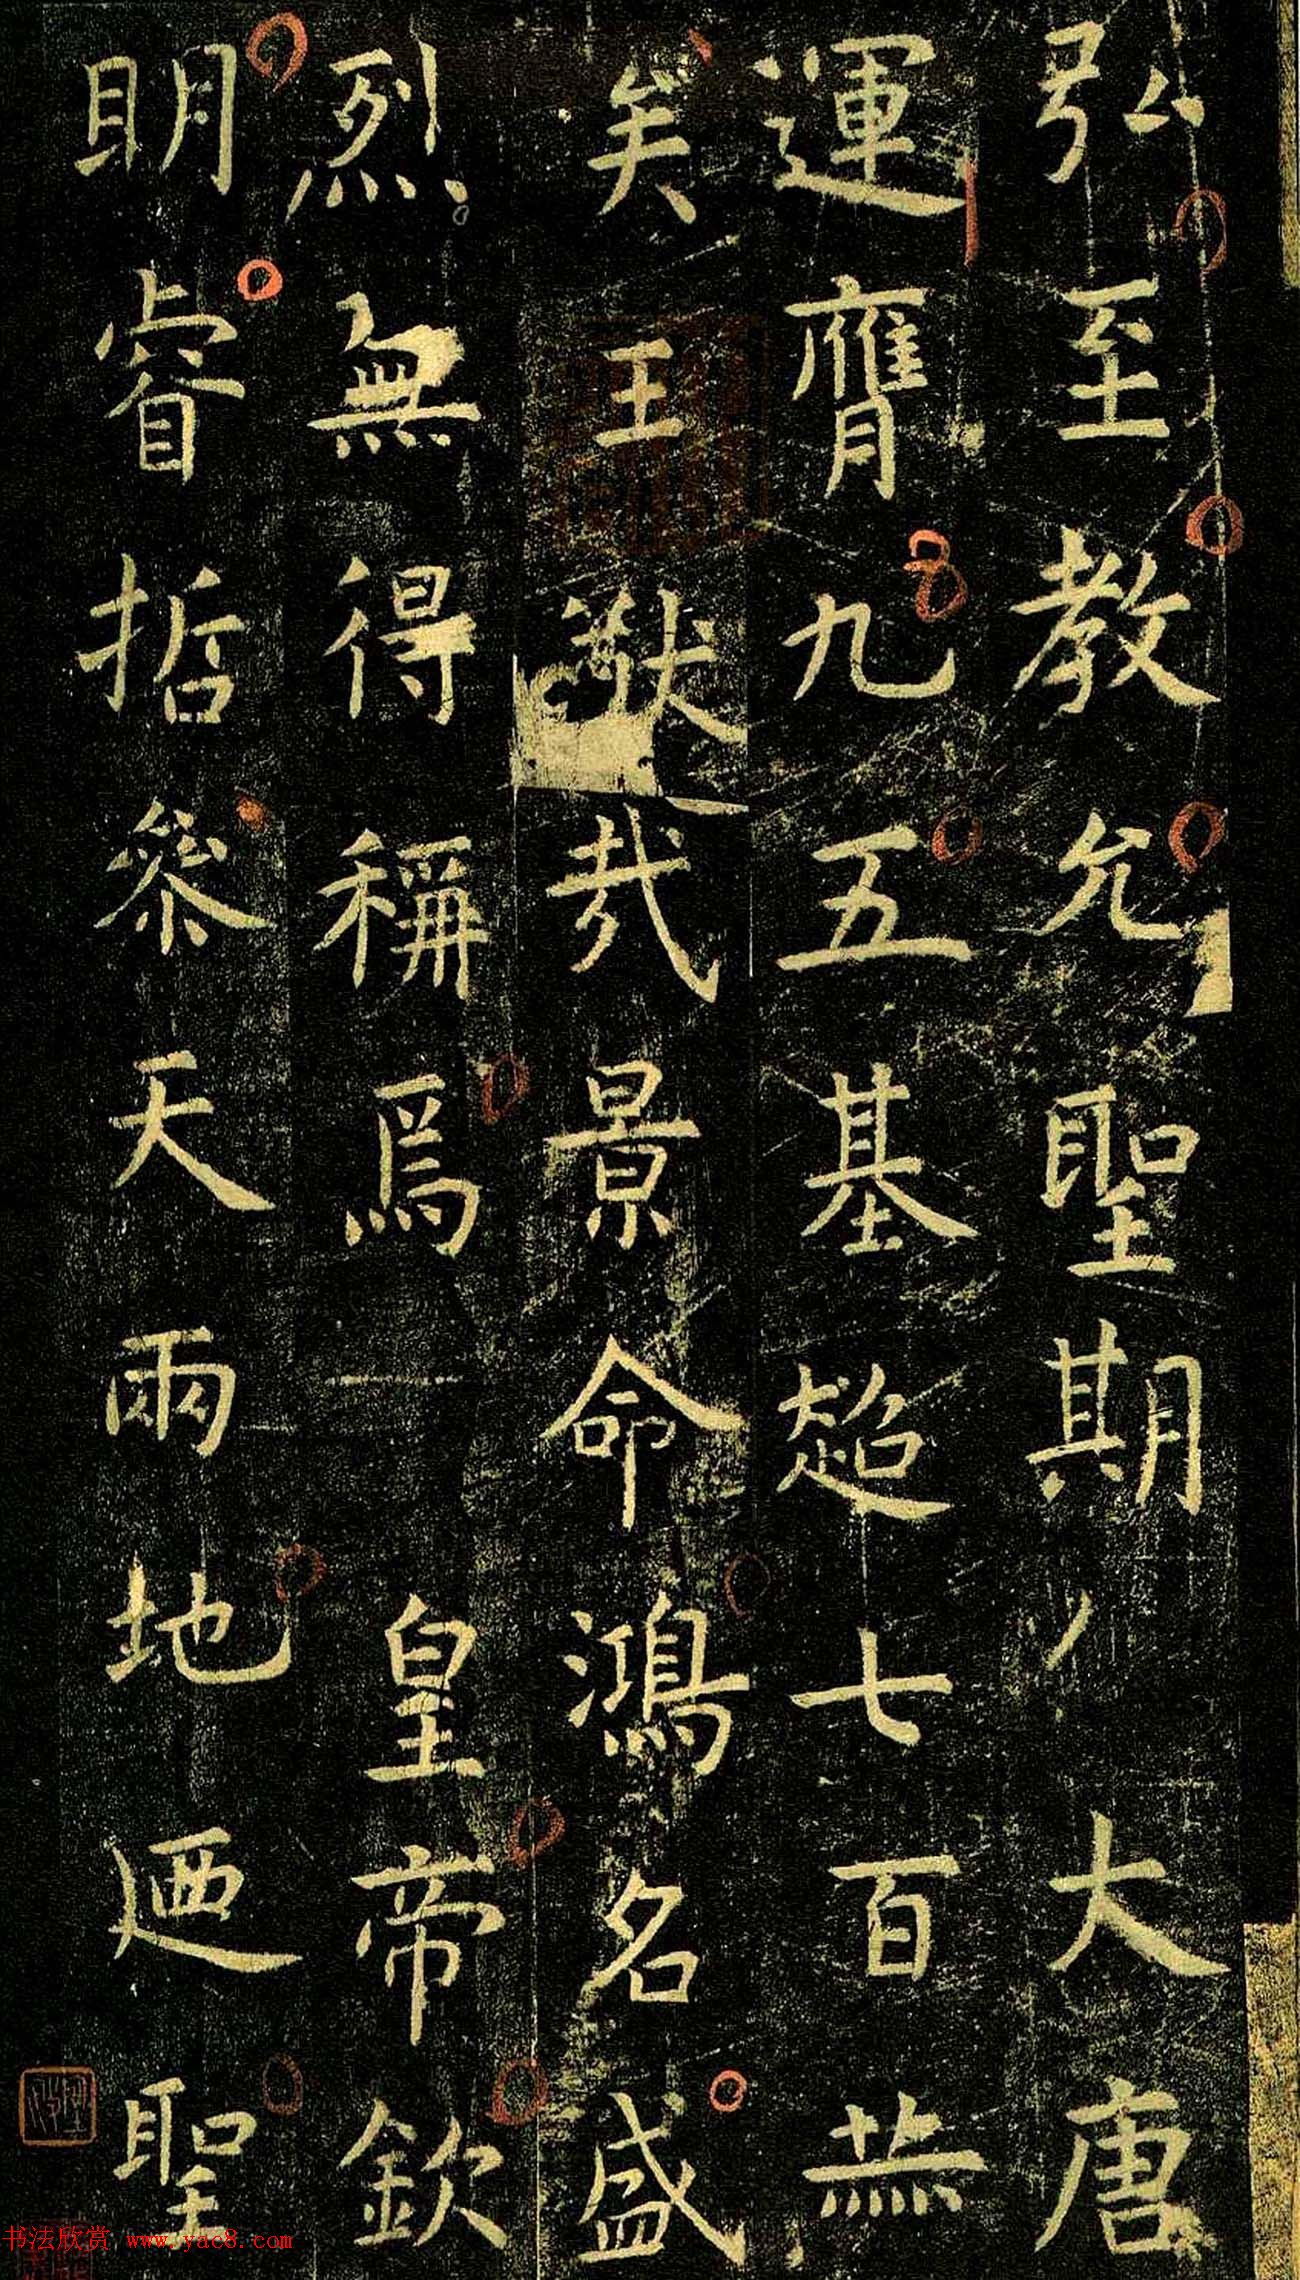 弘至教允聖期大唐
運膺九五基超七百
矣王猷哉景命鴻名盛
烈無得稱焉皇帝欽
明睿哲參天兩地廼聖
书法欣赏 www.yac8.com